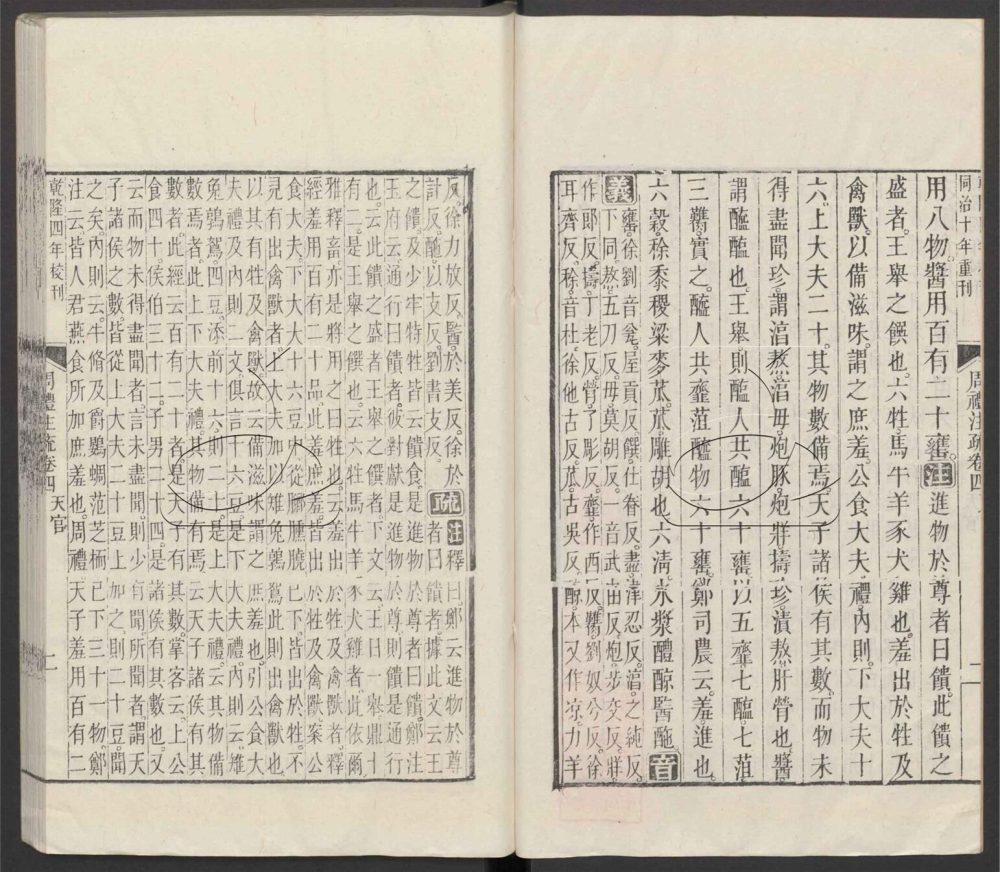 同治十年重刊
周禮注疏卷四
用八物醬用百有二十罋注進物於尊者曰饋此饋之
盛者王舉之饌也六牲馬牛羊豕犬雞也羞出於牲及
禽獸以備滋味謂之庶羞公食大夫禮內則下大夫十
六上大夫二十其物數備焉天子諸侯有其數而物未
得盡聞珍謂淳熬淳毋炮豚炮牂擣珍漬熬肝膋也醬
謂醯醢也王舉則醢人共醢六十罋以五齏七醢七菹
三臡實之醯人共齏菹醯物六十罋鄭司農云羞進也
六穀稌黍稷粱麥苽苽雕胡也六清水漿醴醇醫酏音
義罋徐劉音瓮屋貢反饌仕眷反盡津忍反淳之純反
下同熬五刀反毋莫胡反一音武由反炮步交反牂
作郎反擣丁老反膋了彫反齏作西反臡劉奴兮反徐
耳齊反稌音杜徐他古反苽古吳反醇本又作凉力羊
反徐力放反醫於美反徐於
計反酏以支反劉書支反疏注釋曰鄭云進物於尊
者曰饋者據此文云王
之饋及少牢特牲皆云饋食是進物於尊者曰饋鄭注
玉府云通行曰饋者彼對獻是進物於尊則饋是通行
也云此饋之盛者王舉之饌者下文云王日一舉鼎十
有二是王舉之饌也云六牲馬牛羊豕犬雞者此依爾
雅釋畜亦是將用之曰牲也云羞出於牲及禽獸者釋
經羞用百有二十品此羞庶羞皆出於牲及禽獸案公
食大夫下大夫十六豆中從膷臐膮已下皆出於牲不
見有出禽獸者上大夫加以雉兔鶉鴽此則出禽獸也
以其有牲及禽獸故云備滋味謂之庶羞也引公食大
夫禮及內則二文俱言十六豆是下大夫禮內則云雉
兔鶉鴽四豆添前十六則二十豆是上大夫禮云其物備
數焉者此上下大夫禮其物備有焉云天子諸侯有其
數者此經云百有二十者是天子有其數掌客云上公
食四十侯伯三十二子男二十四是諸侯有其數也又
云而物未得盡聞者言未盡聞則少有聞所聞者謂天
子諸侯之數皆從上大夫二十豆上加之則二十豆聞
之矣內則云牛脩及爵鷃蜩范芝栭已下三十一物鄭
注云皆人君燕食所加庶羞也周禮天子羞用百有二
乾隆四年校刊
周禮注疏卷四 天官
二